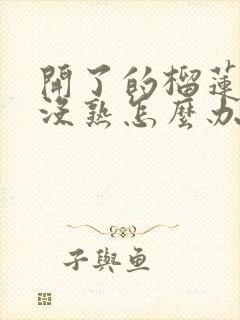 開了的榴蓮
沒熟怎麼办
子與鱼